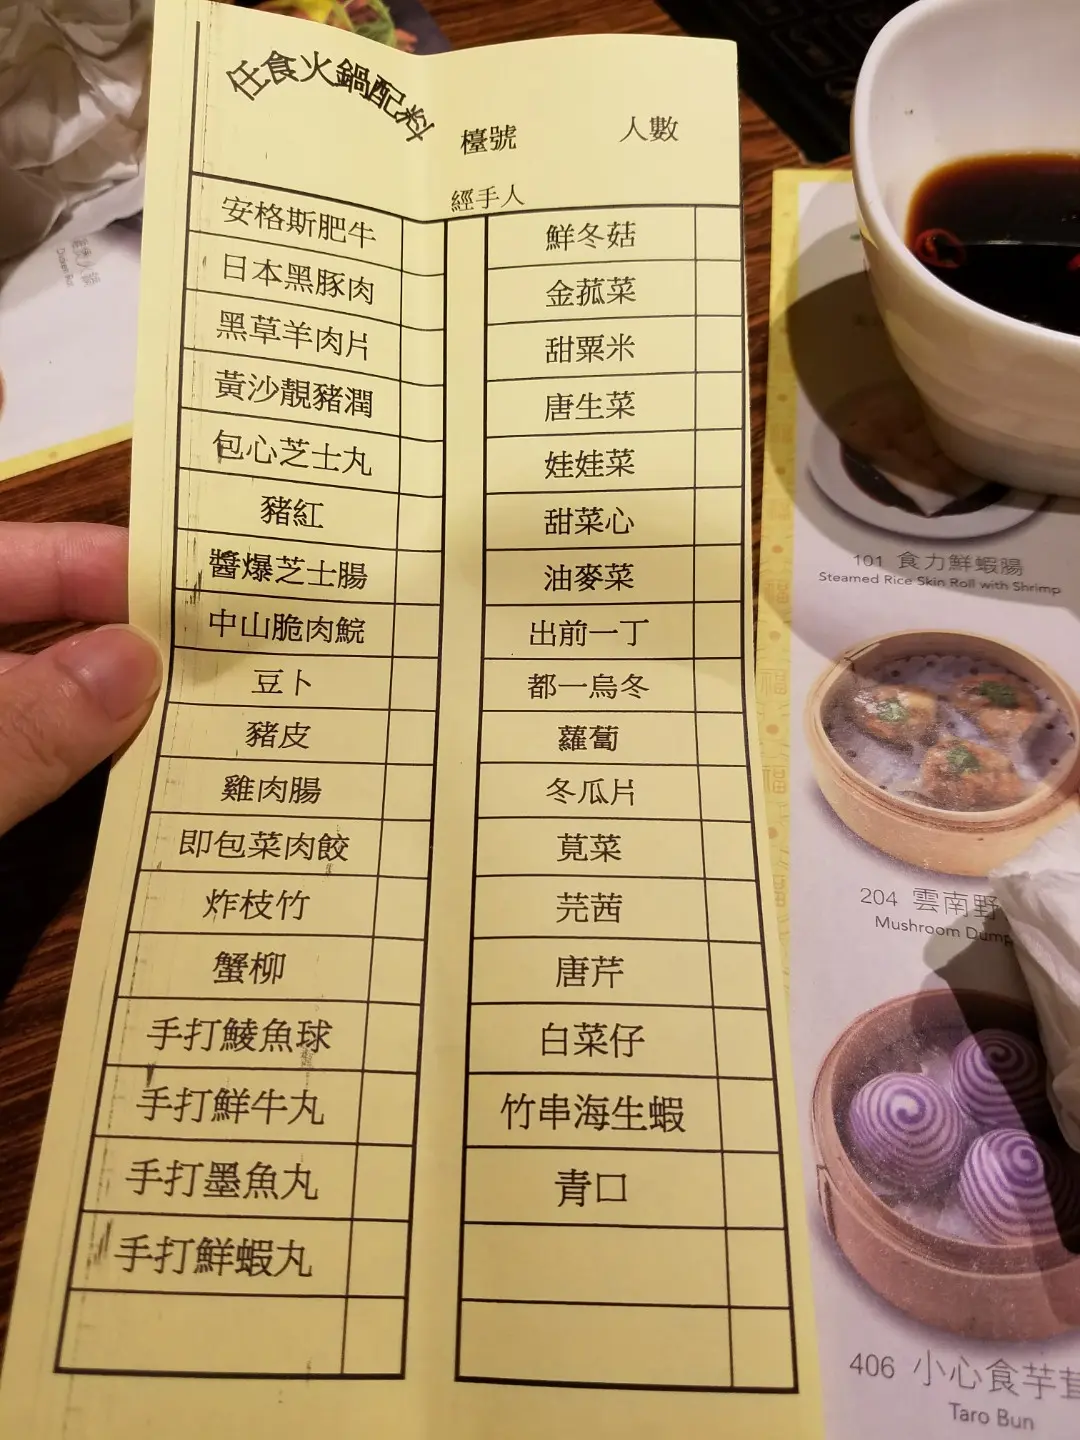 任食火鍋配料
檯號 人數
經手人
安格斯肥牛
日本黑豚肉
黑草羊肉片
黃沙靚豬潤
包心芝士丸
豬紅
醬爆芝士腸
中山脆肉鯇
豆卜
豬皮
雞肉腸
即包菜肉餃
炸枝竹
蟹柳
手打鯪魚球
手打鮮牛丸
手打墨魚丸
手打鮮蝦丸
鮮冬菇
金菰菜
甜粟米
唐生菜
娃娃菜
甜菜心
油麥菜
出前一丁
都一烏冬
蘿蔔
冬瓜片
莧菜
芫茜
唐芹
白菜仔
竹串海生蝦
青口
101 食力鮮蝦腸
Steamed Rice Skin Roll with Shrimp
204 雲南野
Mushroom Dump
406 小心食芋茸
Taro Bun